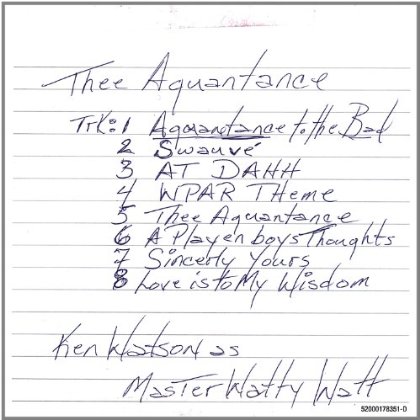 Thee Aquantance
TrK: 1 Aquandance to the Bad
2 Swauvé
3 AT DAHH
4 WPAR THeme
5 Thee Aquantance
6 A Player boys Thoughts
7 Sincerly Yours
8 Love is to My Wisdom
Ken Watson as
MasTer Watty Watt
52000178351-D